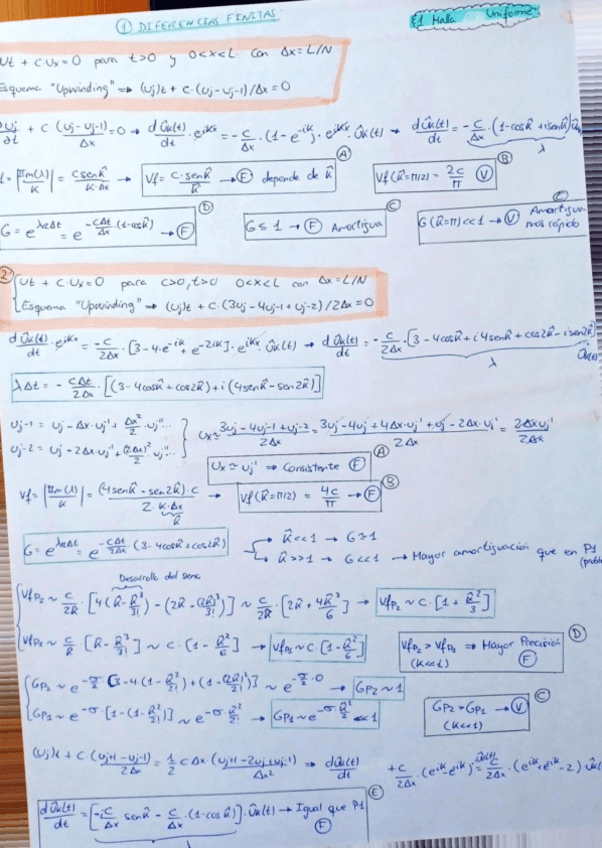 ① DIFERENCIAS FINITAS
1 Malla Uniforme
Ut + C·Ux = 0 para t>0 y 0<x<L con Δx = L/N
Esquema "Upwinding" → (Uj)t + C·(Uj - Uj-1)/Δx = 0
+ C·(Uj - Uj-1)/Δx = 0 → dÛk(t)/dt · e^iKx = -C/Δx · (1 - e^-ik)· e^iKx · Ûk(t) → dÛk(t)/dt = -C/Δx · (1 - cosk̂ + i senk̂)
λ
|Im(λ)/K| = C senk̂/K·Δx → Vf = C·senk̂/k̂ → Ⓕ depende de k̂ Ⓐ
Vf(k̂=π/2) = 2C/π Ⓥ Ⓑ
G = e^λRΔt = e^-CΔt/Δx·(1-cosk̂) → Ⓕ Ⓓ
G ≤ 1 → Ⓕ Amortigua Ⓒ
G(k̂=π) <<1 → Ⓥ Amortigua más rápido
2 Ut + C·Ux = 0 para C>0, t>0 0<x<L con Δx = L/N
Esquema "Upwinding" → (Uj)t + C·(3Uj - 4Uj-1 + Uj-2)/2Δx = 0
dÛk(t)/dt · e^iKx = -C/2Δx · [3 - 4·e^-ik + e^-2ik]· e^iKx · Ûk(t) → dÛk(t)/dt = -C/2Δx · [3 - 4cosk̂ + i4senk̂ + cos2k̂ - i sen2k̂]
λ Ûk(t)
λΔt = - CΔt/2Δx · [(3 - 4cosk̂ + cos2k̂) + i(4senk̂ - sen2k̂)]
Uj-1 = Uj - Δx·Uj' + Δx²/2 Uj''...
Uj-2 = Uj - 2Δx·Uj' + (2Δx)²/2 Uj''...
Ux ≈ 3Uj - 4Uj-1 + Uj-2/2Δx = 3Uj - 4Uj + 4Δx·Uj' + Uj - 2Δx·Uj'/2Δx = 2ΔxUj'/2Δx
Ux ≈ Uj' ⇒ Consistente Ⓕ Ⓐ
Vf = |Im(λ)/K| = (4senk̂ - sen2k̂)·C/2·K·Δx → Vf(k̂=π/2) = 4C/π → Ⓕ Ⓑ
k̂
G = e^λRΔt = e^-CΔt/2Δx · (3 - 4cosk̂ + cos2k̂)
k̂<<1 → G≈1
k̂>>1 → G<<1 → Mayor amortiguación que en P1
Desarrollo del seno
VfP2 ~ C/2k̂ · [4(k̂ - k̂³/3!) - (2k̂ - (2k̂)³/3!)] ~ C/2k̂ · [2k̂ + 4k̂³/6] → VfP2 ~ C·[1 + k̂²/3]
VfP1 ~ C/k̂ · [k̂ - k̂³/3!] ~ C·[1 - k̂²/6] → VfP1 ~ C·[1 - k̂²/6]
VfP2 > VfP1 ⇒ Mayor Precisión Ⓓ
(K<<1) Ⓕ
GP2 ~ e^-σ/2 · [3 - 4·(1 - k̂²/2!) + (1 - (2k̂)²/2!)] ~ e^-σ/2·0 → GP2 ~ 1
GP1 ~ e^-σ·[1 - (1 - k̂²/2!)] ~ e^-σ·k̂²/2 → GP1 ~ e^-σ k̂²/2 <<1
GP2 > GP1 → Ⓥ Ⓒ
(K<<1)
(Uj)t + C·(Uj+1 - Uj-1)/2Δx = 1/2 CΔx·(Uj+1 - 2Uj + Uj-1)/Δx² ⇒ dÛk(t)/dt + C/2Δx · (e^ik - e^-ik)·Ûk(t) = C/2Δx · (e^ik + e^-ik - 2)
dÛk(t)/dt = [-iC/Δx senk̂ - C/Δx · (1 - cosk̂)]·Ûk(t) → Igual que P1 Ⓔ
Ⓕ